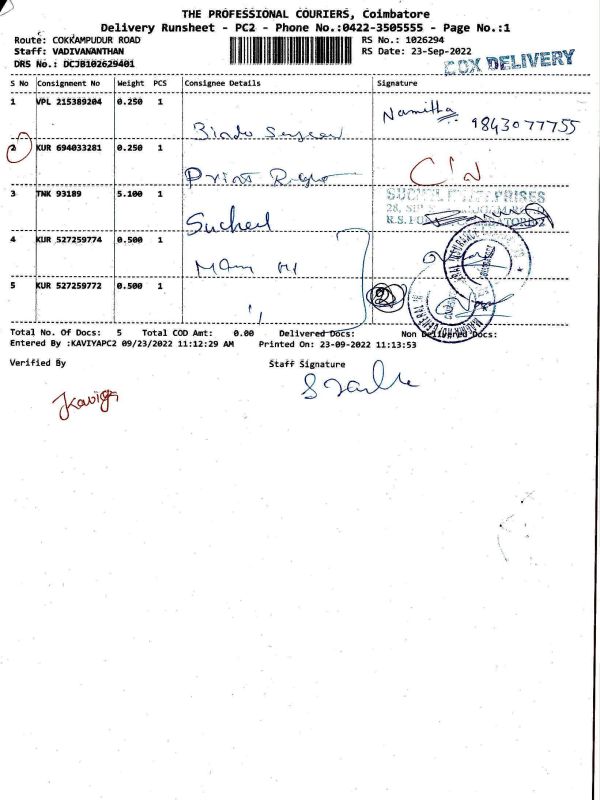 THE PROFESSIONAL COURIERS, Coimbatore
Delivery Runsheet - PC2 - Phone No.:0422-3505555 - Page No.:1
Route: COKKAMPUDUR ROAD RS No.: 1026294
Staff: VADIVANANTHAN RS Date: 23-Sep-2022
DRS No.: DCJB102629401
COX DELIVERY
S No Consignment No Weight PCS Consignee Details Signature
1 VPL 215389204 0.250 1
Namitha 9843077755
2 KUR 694033281 0.250 1
3 TNK 93189 5.100 1
4 KUR 527259774 0.500 1
5 KUR 527259772 0.500 1
Total No. Of Docs: 5 Total COD Amt: 0.00 Delivered Docs: Non Delivered Docs:
Entered By :KAVIYAPC2 09/23/2022 11:12:29 AM Printed On: 23-09-2022 11:13:53
Verified By Staff Signature
Kaviya